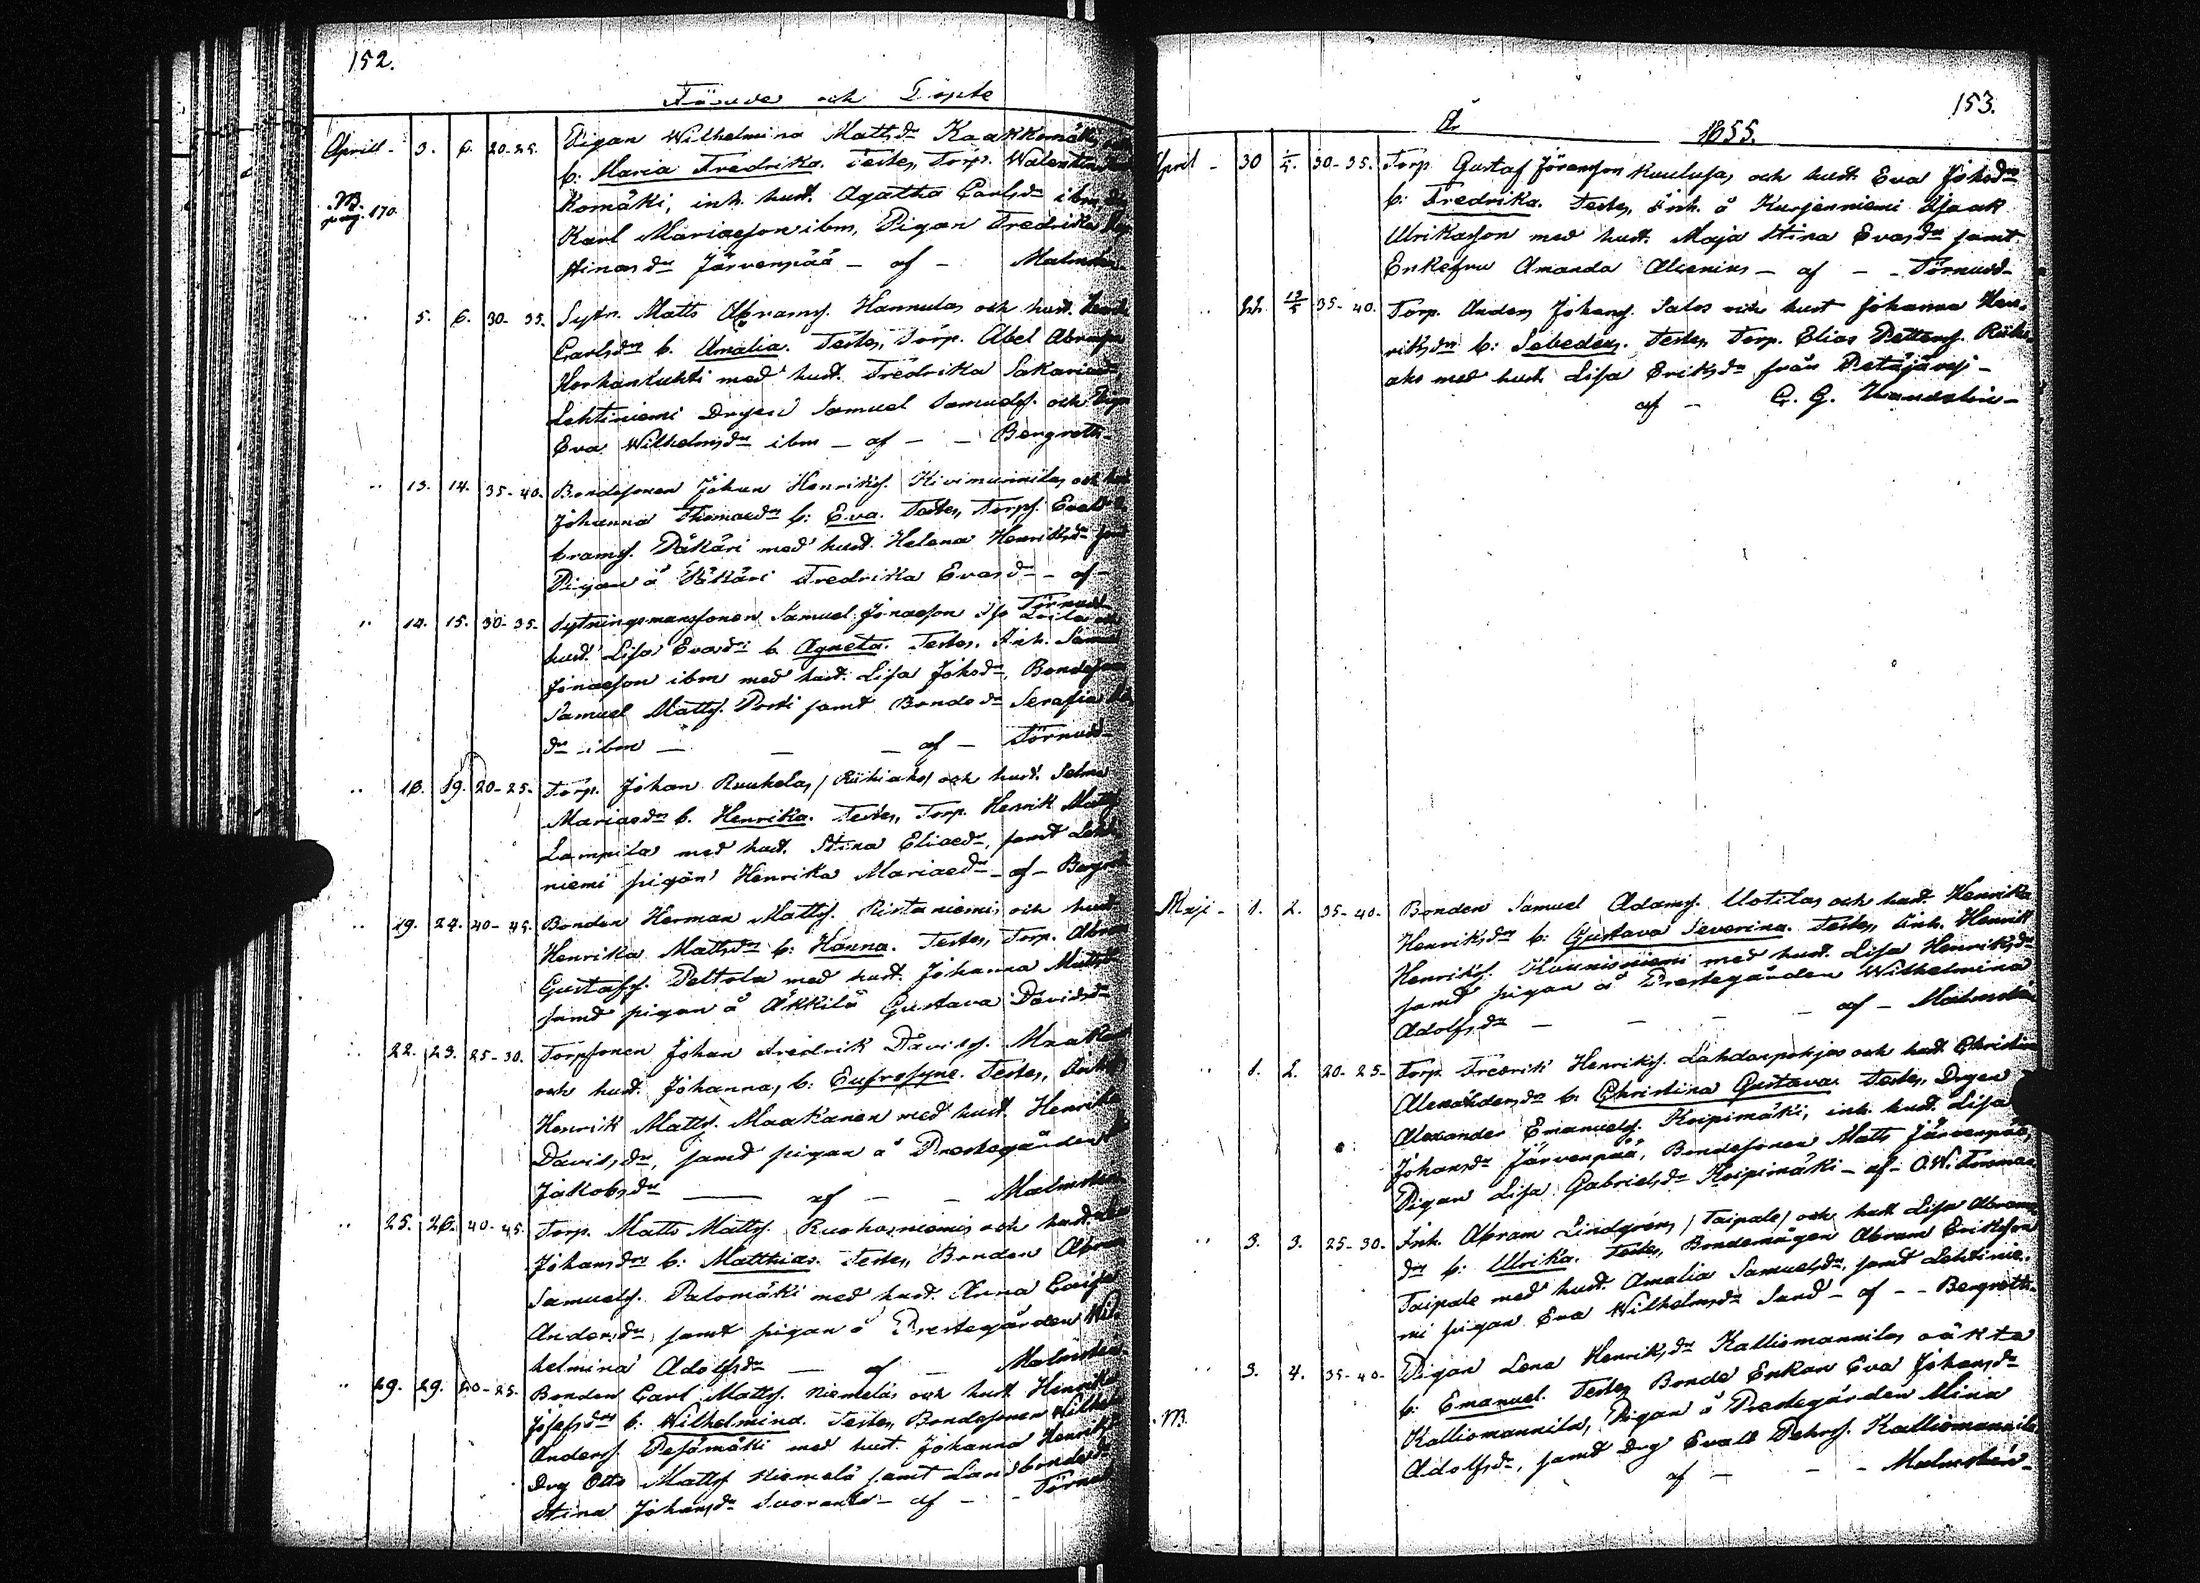 152.
Födde och Döpte
Aprill - 3. 6. 20-25. Pigan Wilhelmina Mattsdr Kaakkomäki
b: Maria Fredrika. Testes, Torp. Walentin
Komäki, inh. hust. Agatha Carlsdr ibm,
Karl Mariaesson ibm, Pigan Fredrika
Stinasdr Järvenpää - af - Malmsten
NB. pag. 170.
" 5. 6. 30-35. Sytn. Matts Abramss. Hannulas och hust.
Carlsdrs b. Amalia. Testes, Torp. Abel Abramss
Korhanluhti med hust. Fredrika Sakariaedr,
Lehtiniemi Drgen Samuel Samuelss. och Pigan
Eva Wilhelmsdr ibm - af - - Bergroth
" 13. 14. 35-40. Bondesonen Johan Henrikss. Kivimunnilas och hust.
Johanna Thomaedrs b: Eva. Testes, Torps. Evald A-
bramss. Päkäri med hust. Helena Henriksdr samt
Pigan å Päkäri Fredrika Evasdr - af -
Törnudd
" 14. 15. 30-35. Sytningsmanssonen Samuel Jonaesson Iso Leilas och
hust. Lisa Evasdrs b. Agneta. Testes, Inh. Samuel
Jonaesson ibm med hust. Lisa Johsdr, Bondesonen
Samuel Mattss. Posti samt Bondedr Serafia
dr ibm - - - af - Törnudd
" 16. 19. 20-25. Torp. Johan Ruuhelas, /Riihiaho/ och hust. Selma
Mariaedrs b. Henrika. Testes, Torp. Henrik Mattss
Lampila med hust. Stina Eliaedr, samt Lehti-
niemi pigan Henrika Mariaedr - af - Bergroth
" 19. 24. 40-45. Bonden Herman Mattss. Ristaniemis och hust.
Henrika Mattsdrs b: Hanna. Testes, Torp. Abram
Gustafss. Peltola med hust. Johanna Mattsdr
samt pigan å Äkkilä Gustava Davidsdr
" 22. 23. 25-30. Torpsonen Johan Fredrik Davidss. Maakanens
och hust. Johanna, b: Eufrosyne. Testes,
Henrik Mattss. Maakanen med hust. Henrika
Davidsdr, samt pigan å Prestegården
Jakobsdr - af - - Malmsten
" 25. 26. 40-45. Torp. Matts Mattss. Ruohoniemis och hust.
Johansdrs b: Matthias. Testes, Bonden Abram
Samuelss. Palomäki med hust. Anna Lovisa
Andersdr, samt pigan å Prestegården Wil-
helmina Adolfsdr - af - Malmsten
" 29. 29. 20-25. Bonden Carl Mattss. Niemelas och hust. Henrika
Josefsdrs b: Wilhelmina. Testes, Bondesonen Wilhelm
Anderss. Pesämäki med hust. Johanna Henriksdr
Drg Otto Mattss Niemelä samt Landbondedr
Stina Johansdr Suoranta - af - - Törnudd
153.
År 1855.
April - 30 1/5. 30-35. Torp. Gustaf Göransson Kuulusas, och hust. Eva Johsdrs
b: Fredrika. Testes, Inh. å Kurjenniemi Isaak
Ulrikasson med hust. Maja Stina Evasdr samt
Enkefru Amanda Alcenius - af - - Törnudd -
" 22 13/5 35-40. Torp. Anders Johanss. Salos och hust Johanna Hen-
riksdrs b: Sebedeus. Testes, Torp. Elias Petterss. Riihi-
aho med hust. Lisa Eriksdr från Petäjävesi -
af - C. G. Wandelin -
Maji - 1. 2. 35-40. Bonden Samuel Adamss. Uotilas och hust. Henrika
Henriksdrs b: Gustava Severina. Testes, Inh. Henrik
Henrikss. Kaunisniemi med hust. Lisa Henriksdr
samt pigan å Prestegården Wilhelmina
Adolfsdr - - - - af - Malmsten
" 1. 2. 20-25. Torp. Fredrik Henrikss. Lahdenpohjas och hust. Christina
Alexandersdrs b: Christina Gustava. Testes, Drgen
Alexander Emanuelss. Koipimäki, inh. hust. Lisa
Johansdr Järvenpää, Bondesonen Matts Järvenpää,
Pigan Lisa Gabrielsdr Koipimäki - af - O.W. Forsman
" 3. 3. 25-30. Inh. Abram Lindgréns, /Taipale/ och hust Lisa Abrams
drs b: Ulrika. Testes, Bondemågen Abram Eriksson
Taipale med hust. Amalia Samuelsdr, samt Lehtinie-
mi pigan Eva Wilhelmsdr Sand - af - - Bergroth
" 3. 4. 35-40. Pigan Lena Henriksdr Kalliomannilas oäkta
b: Emanuel. Testes Bonde Enkan Eva Johansdr
Kalliomannila, Pigan å Prestegården Mina
Adolfsdr, samt Drg Evald Pehrss. Kalliomannila
af - - - Malmstén -
NB.